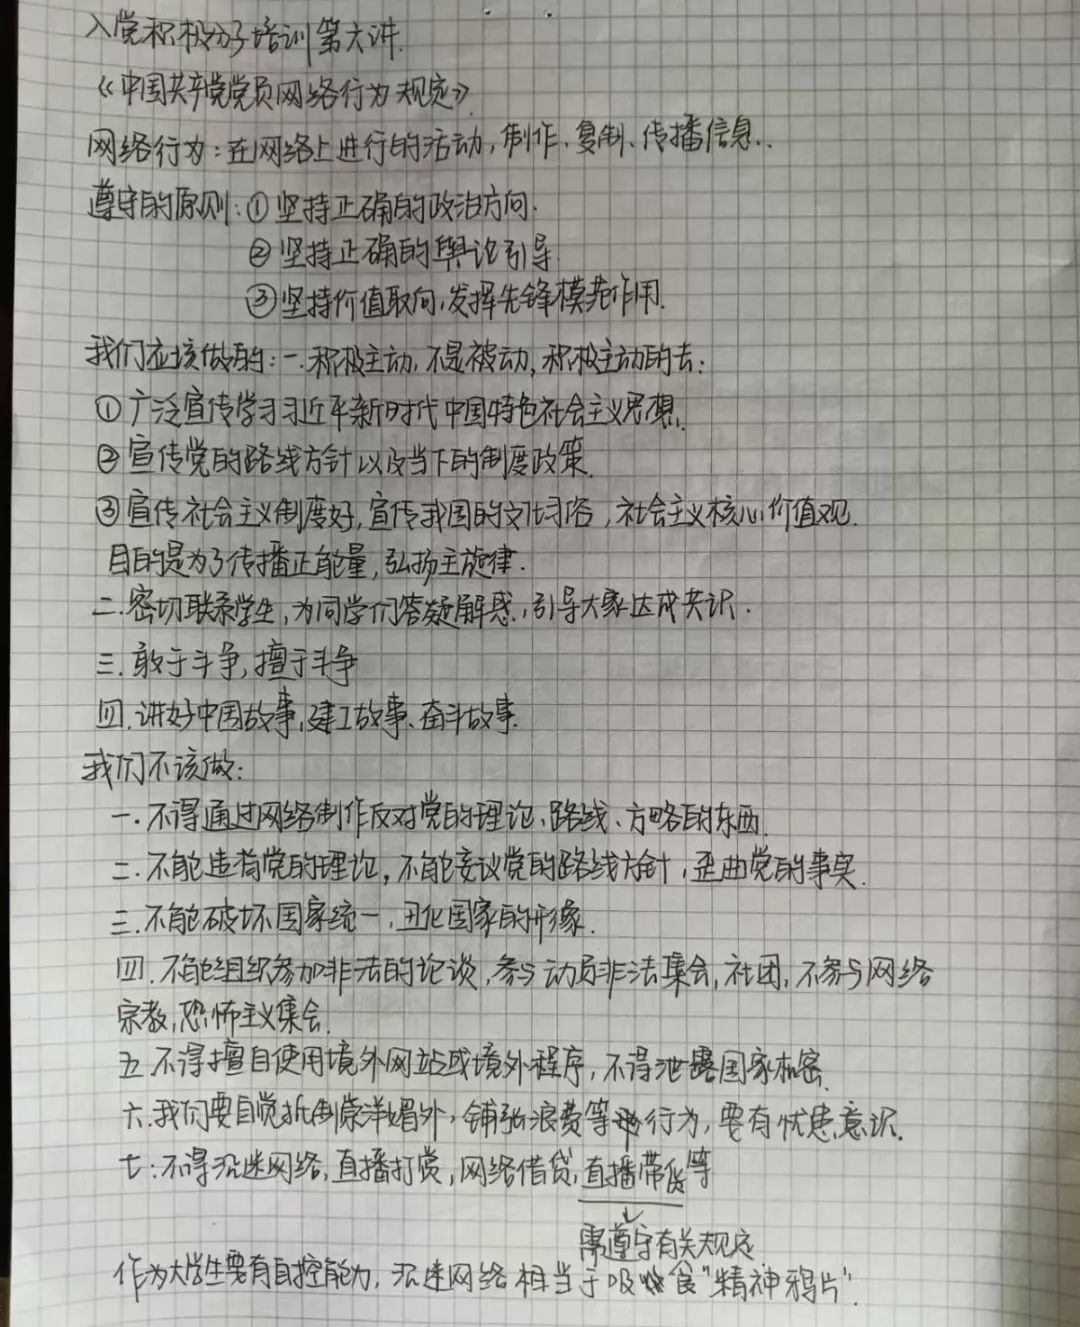 入党积极分子培训第六讲.
《中国共产党党员网络行为规定》
网络行为:在网络上进行的活动,制作、复制、传播信息..
遵守的原则:①坚持正确的政治方向.
②坚持正确的舆论引导.
③坚持价值取向,发挥先锋模范作用.
我们应该做的:一.积极主动,不是被动,积极主动的去:
①广泛宣传学习习近平新时代中国特色社会主义思想.
②宣传党的路线方针以及当下的制度政策.
③宣传社会主义制度好,宣传我国的文化习俗,社会主义核心价值观.
目的是为了传播正能量,弘扬主旋律.
二.密切联系学生,为同学们答疑解惑,引导大家达成共识.
三.敢于斗争,擅于斗争
四.讲好中国故事,建工故事、奋斗故事.
我们不该做:
一.不得通过网络制作反对党的理论、路线、方略的东西.
二.不能违背党的理论,不能妄议党的路线方针,歪曲党的事实.
三.不能破坏国家统一,丑化国家的形象.
四.不能组织参加非法的论谈,参与动员非法集会,社团,不参与网络
宗教,恐怖主义集会.
五.不得擅自使用境外网站或境外程序,不得泄露国家机密.
六.我们要自觉抵制崇洋媚外,铺张浪费等行为,要有忧患意识.
七:不得沉迷网络,直播打赏,网络借贷,直播带货等
需遵守有关规定
作为大学生要有自控能力,沉迷网络相当于吸食"精神鸦片".